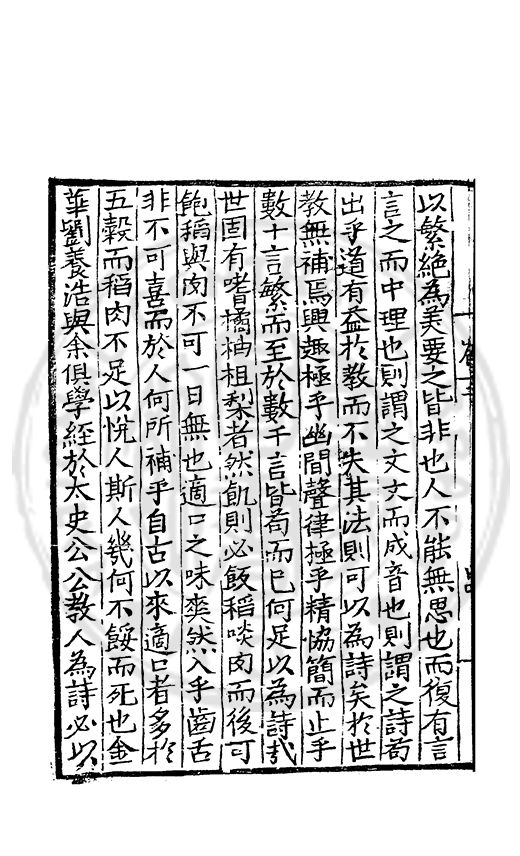 以繁絕為美要之皆非也人不能無思也而復有言
言之而中理也則謂之文文而成音也則謂之詩苟
出乎道有益於教而不失其法則可以為詩矣於世
教無補焉興趣極乎幽閒聲律極乎精協簡而止乎
數十言繁而至於數千言皆苟而已何足以為詩哉
世固有嗜橘柚柤梨者然飢則必飯稻啖肉而後可
飽稻與肉不可一日無也適口之味爽然入乎齒舌
非不可喜而於人何所補乎自古以來適口者多於
五穀而稻肉不足以悅人斯人幾何不餒而死也金
華劉養浩與余俱學經於太史公公教人為詩必以